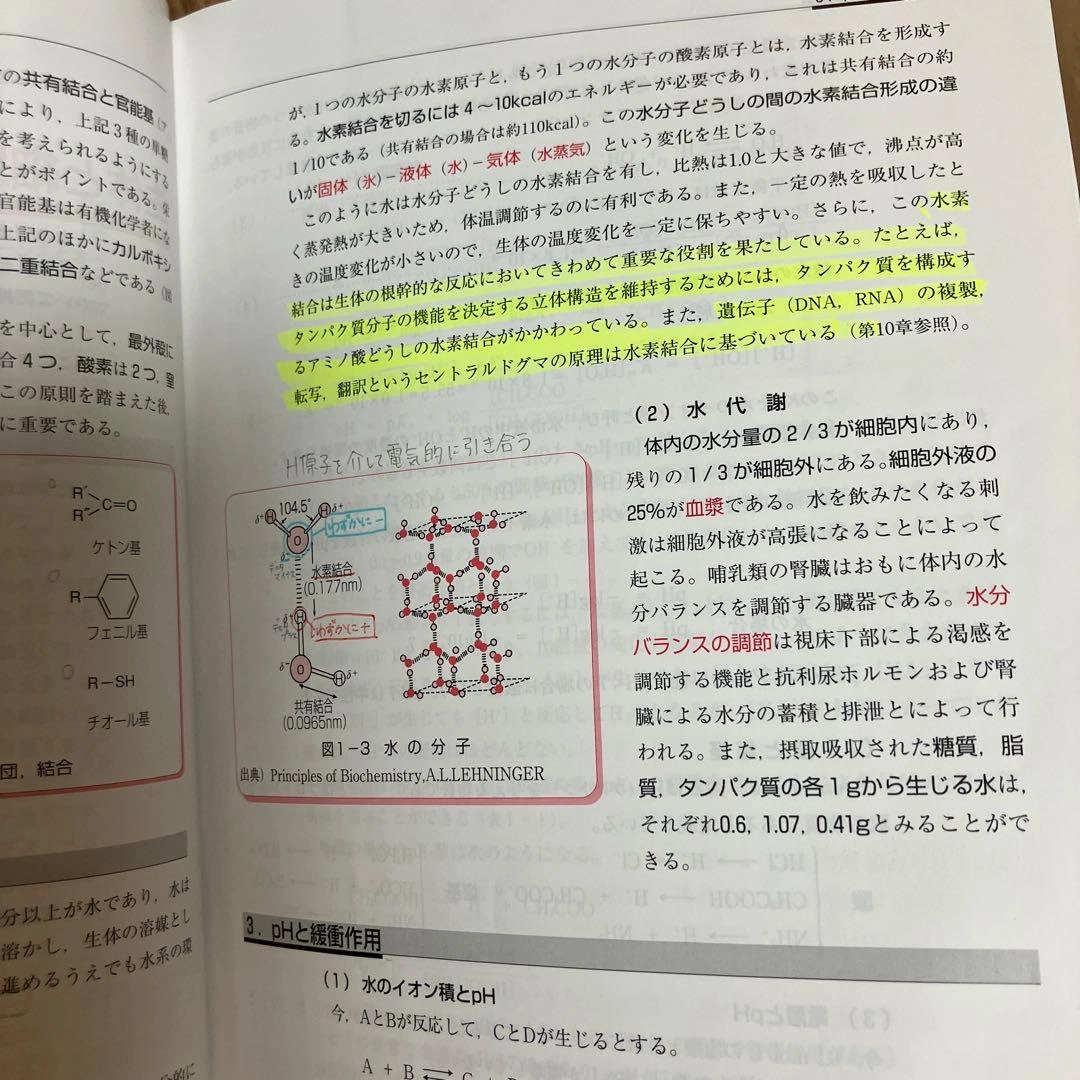 の共有結合と官能基
により，上記３種の単糖
を考えられるようにする
とがポイントである。栄
官能基は有機化学者にな
上記のほかにカルボキシ
二重結合などである（図
を中心として，最外殻に
合４つ，酸素は２つ，窒
この原則を踏まえた後，
に重要である。
R′
R″
C＝O
ケトン基
R
フェニル基
R－SH
チオール基
団，結合
分以上が水であり，水は
溶かし，生体の溶媒とし
進めるうえでも水系の環
が，１つの水分子の水素原子と，もう１つの水分子の酸素原子とは，水素結合を形成す
る。水素結合を切るには４～10kcalのエネルギーが必要であり，これは共有結合の約
1/10である（共有結合の場合は約110kcal）。この水分子どうしの間の水素結合形成の違
いが固体（氷）－液体（水）－気体（水蒸気）という変化を生じる。
このように水は水分子どうしの水素結合を有し，比熱は1.0と大きな値で，沸点が高
く蒸発熱が大きいため，体温調節するのに有利である。また，一定の熱を吸収したと
きの温度変化が小さいので，生体の温度変化を一定に保ちやすい。さらに，この水素
結合は生体の根幹的な反応においてきわめて重要な役割を果たしている。たとえば，
タンパク質分子の機能を決定する立体構造を維持するためには，タンパク質を構成す
るアミノ酸どうしの水素結合がかかわっている。また，遺伝子（DNA，RNA）の複製，
転写，翻訳というセントラルドグマの原理は水素結合に基づいている（第10章参照）。
H原子を介して電気的に引き合う
104.5°
δ+ H H δ+
O
わずかに－
δ-
デルタ
マイナス
水素結合
(0.177nm)
δ+
H
デルタ
プラス
わずかに＋
δ- O H δ+
共有結合
(0.0965nm)
図1－3　水の分子
出典）Principles of Biochemistry,A.L.LEHNINGER
（２）水代謝
体内の水分量の２/３が細胞内にあり，
残りの１/３が細胞外にある。細胞外液の
25%が血漿である。水を飲みたくなる刺
激は細胞外液が高張になることによって
起こる。哺乳類の腎臓はおもに体内の水
分バランスを調節する臓器である。水分
バランスの調節は視床下部による渇感を
調節する機能と抗利尿ホルモンおよび腎
臓による水分の蓄積と排泄とによって行
われる。また，摂取吸収された糖質，脂
質，タンパク質の各１gから生じる水は，
それぞれ0.6，1.07，0.41gとみることがで
きる。
３．pHと緩衝作用
（１）水のイオン積とpH
今，AとBが反応して，CとDが生じるとする。
A + B ⇄ C